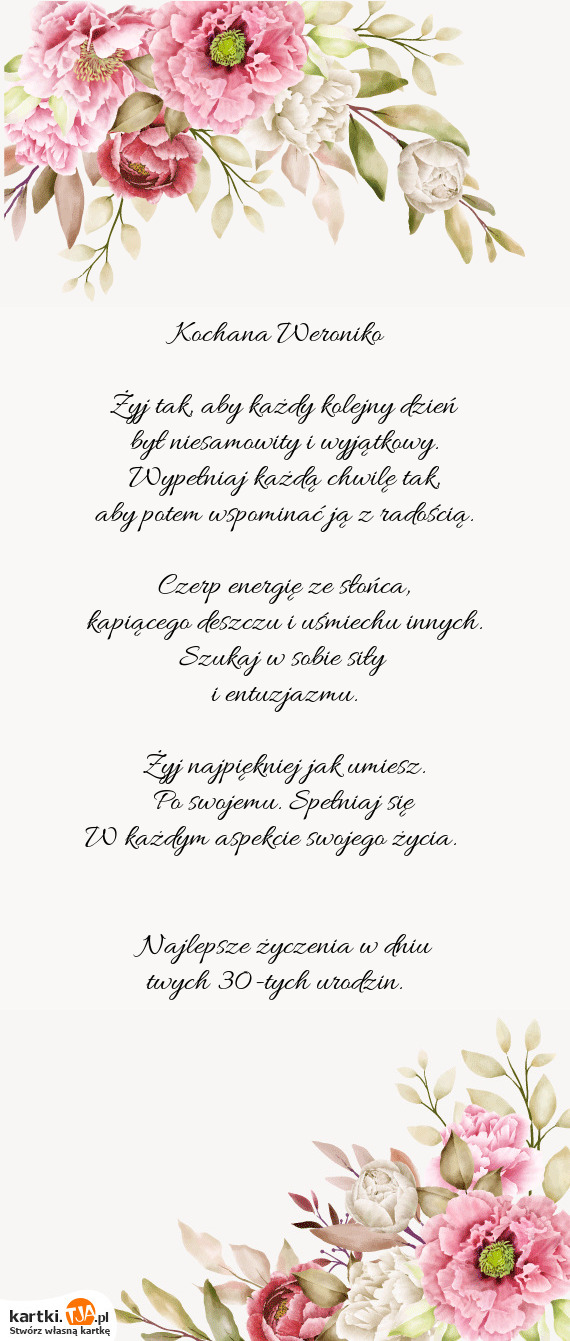 Kochana Weroniko
Żyj tak, aby każdy kolejny dzień
był niesamowity i wyjątkowy.
Wypełniaj każdą chwilę tak,
aby potem wspominać ją z radością.
Czerp energię ze słońca,
kapiącego deszczu i uśmiechu innych.
Szukaj w sobie siły
i entuzjazmu.
Żyj najpiękniej jak umiesz.
Po swojemu. Spełniaj się
W każdym aspekcie swojego życia.
Najlepsze życzenia w dniu
twych 30-tych urodzin.
kartki.TJA.pl
Stwórz własną kartkę